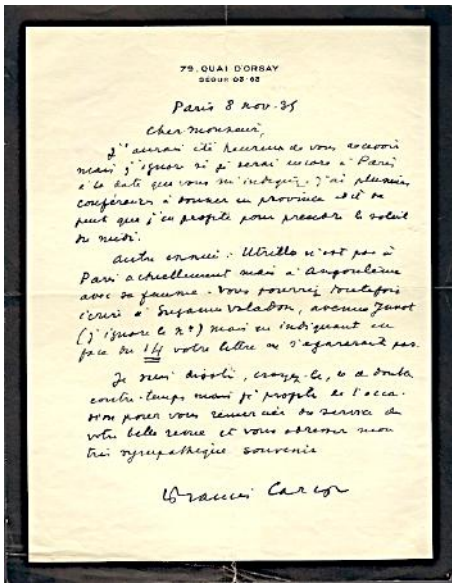 79, QUAI D'ORSAY
SÉGUR 03-63
Paris 8 nov. 35
Cher Monsieur,
J'aurais été heureux de vous recevoir
mais j'ignore si je serai encore à Paris
à la date que vous m'indiquez. J'ai plusieurs
conférences à donner en province et il se
peut que j'en profite pour prendre le soleil
du midi.
Autre ennui : Utrillo n'est pas à
Paris actuellement mais à Angoulême
avec sa femme. Vous pourrez toutefois
écrire à Suzanne Valadon, avenue Junot
(j'ignore le n°) mais en indiquant en
face du 14 votre lettre ne s'égarerait pas.
Je suis désolé, croyez-le, de ce double
contre-temps mais je profite de l'occa-
sion pour vous remercier du service de
votre belle revue et vous adresser mon
très sympathique souvenir
Francis Carco